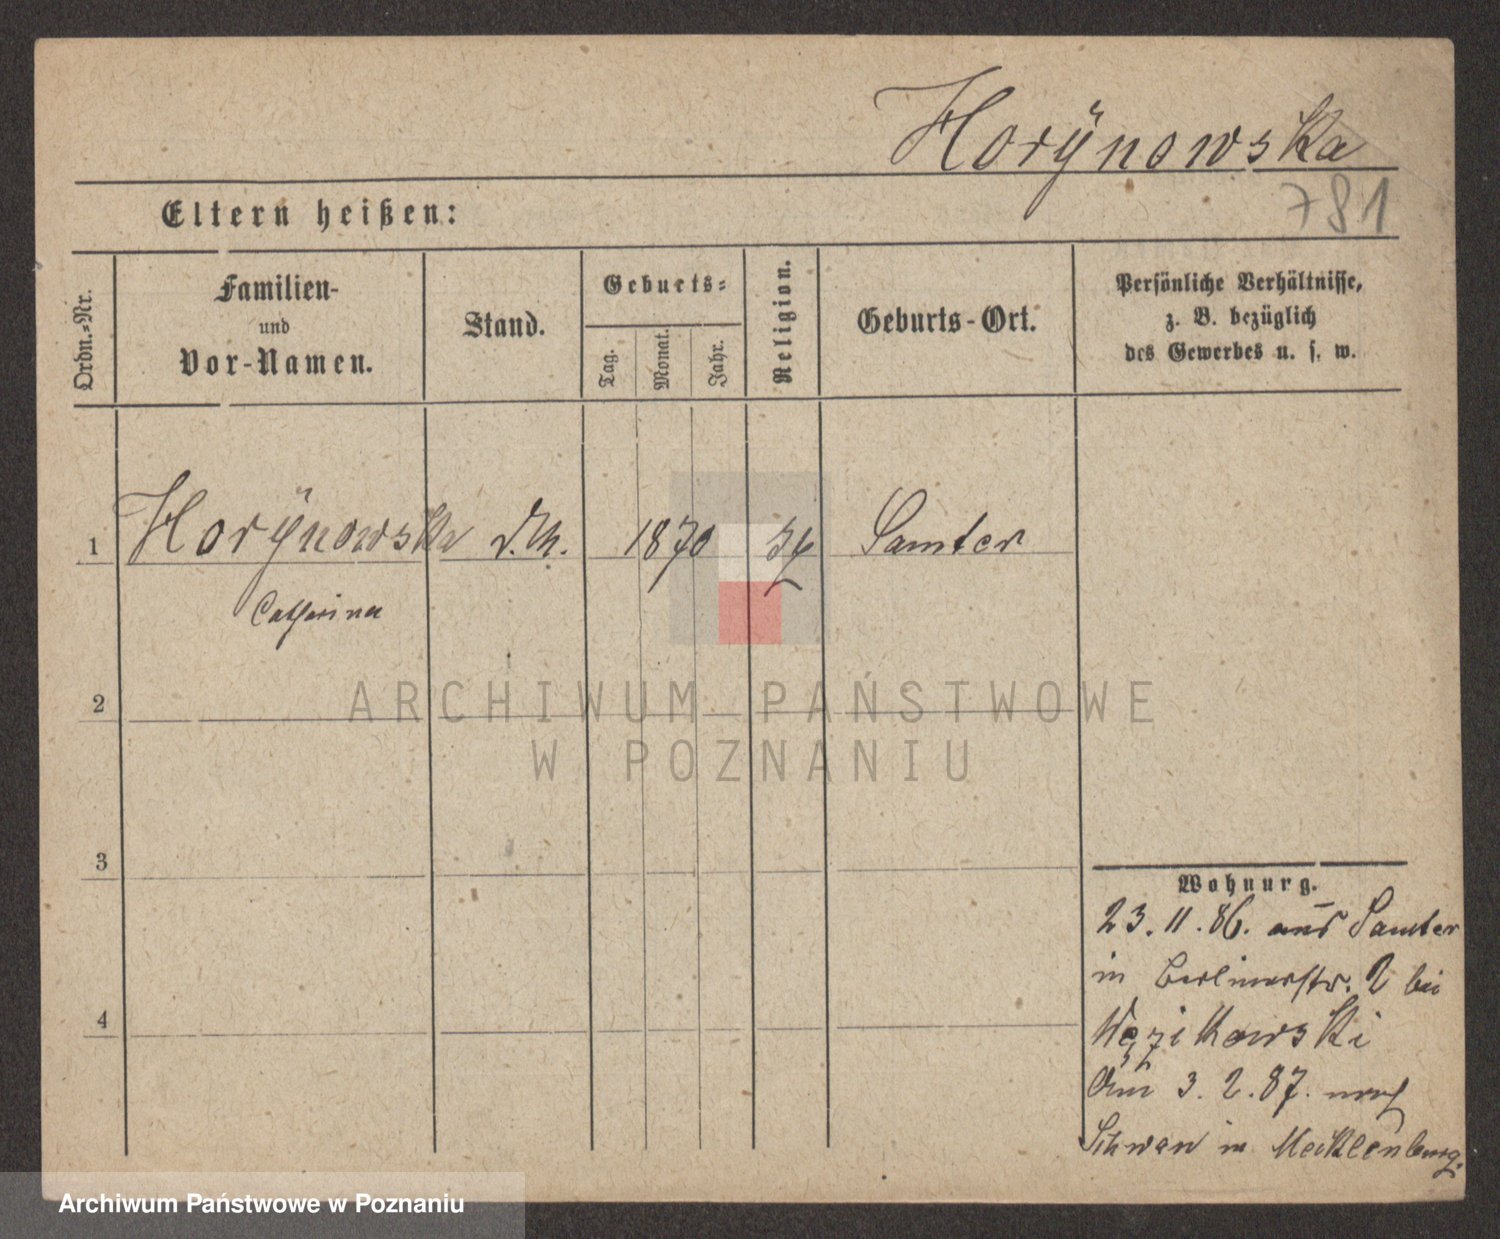 Horÿnowska
781
Eltern heißen:
Ordn.-Nr.
Familien-
und
Vor-Namen.
Stand.
Geburts-
Tag.
Monat.
Jahr.
Religion.
Geburts-Ort.
Persönliche Verhältnisse,
z. B. bezüglich
des Gewerbes u. s. w.
1 Horÿnowska d.M. 1870 Samter
Catharina
2
ARCHIWUM PAŃSTWOWE
W POZNANIU
3
4
Wohnung.
23.11.86. aus Samter
in Berlinerstr. 2 bei
3.2.87. nach
Schwan in Mecklenburg.
Archiwum Państwowe w Poznaniu